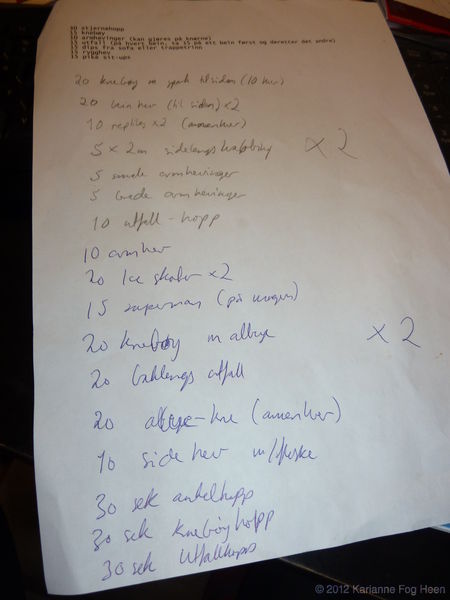 30 stjernehopp
15 knebøy
10 armhevinger (kan gjøres på knærne)
15 utfall (på hvert bein, ta 15 på ett bein først og deretter det andre)
15 dips fra sofa eller trappetrinn
15 rygghev
15 pike sit-ups
20 knebøy m spark til siden (10 hver)
20 hver (til siden) x2
10 reptiles x2 (annenhver)
5 x 2m sidelengs x2
5 smale armhevinger
5 brede armhevinger
10 utfall-hopp
10 armhev
20 Ice skater x2
15 supermas (på magen)
20 knebøy m albue x2
20 baklengs utfall
20 albue-kne (annenhver)
10 side hev m/
30 sek ankelhopp
30 sek knebøyhopp
30 sek utfallhopp
© 2012 Karianne Fog Heen